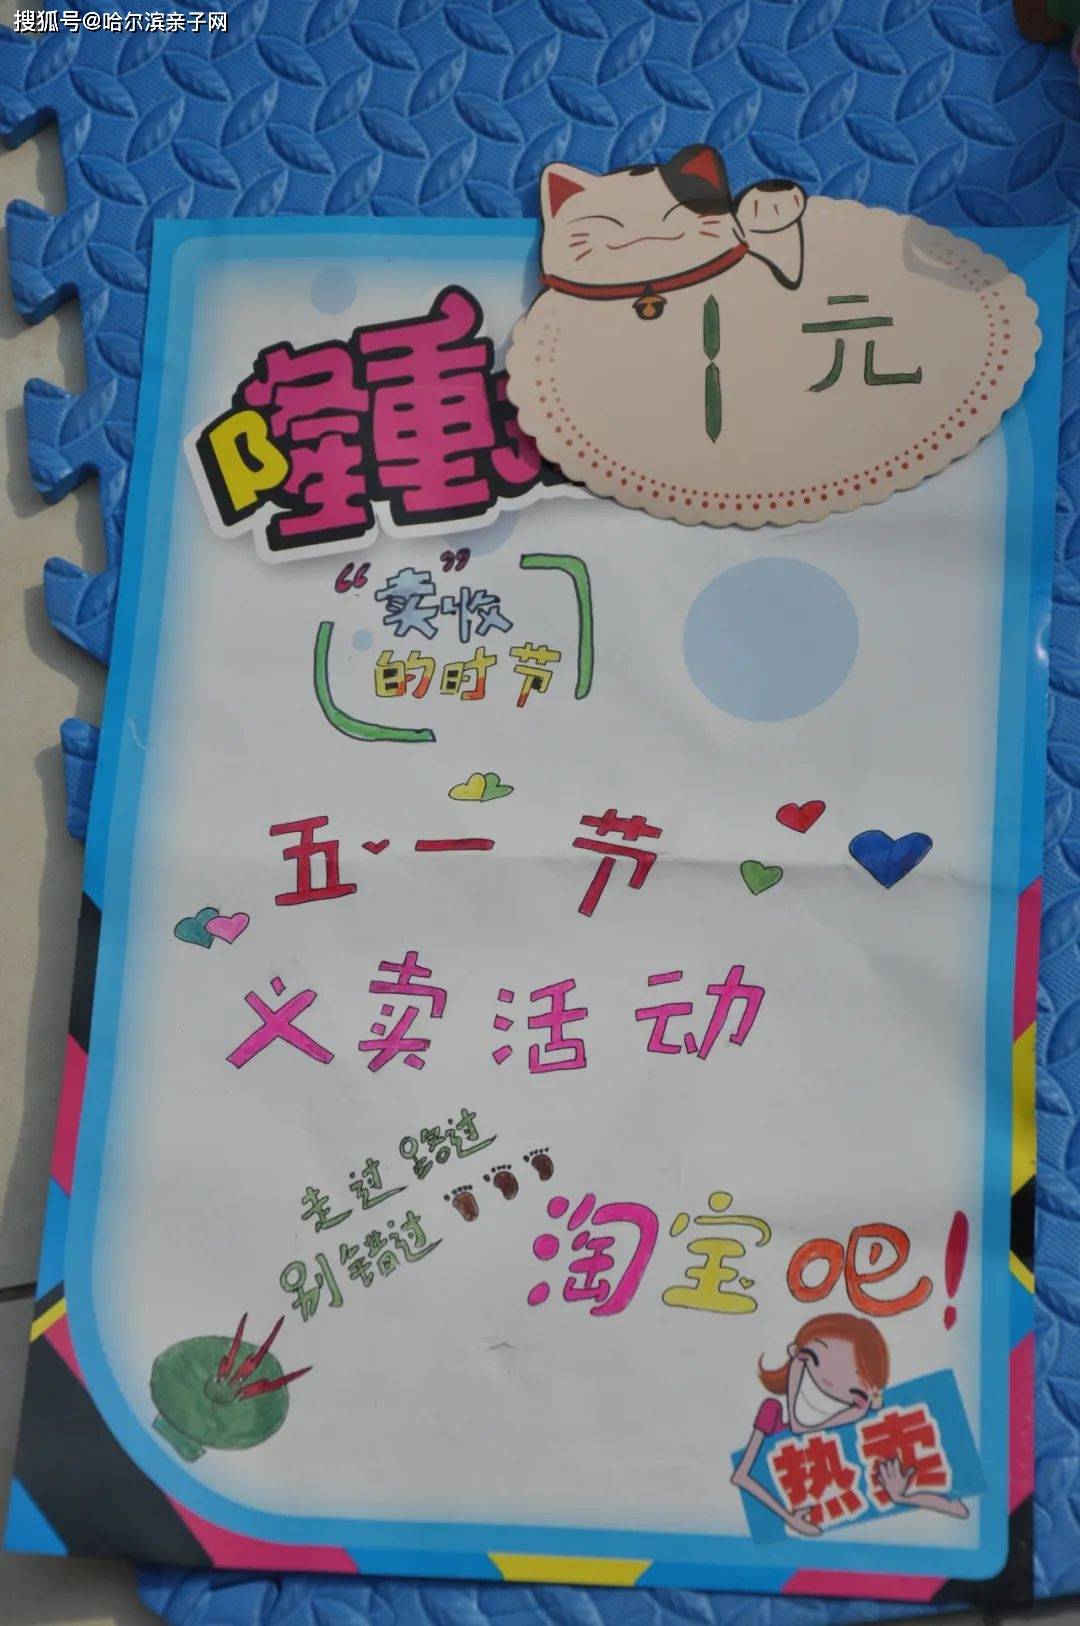 搜狐号@哈尔滨亲子网
1元
隆重
“卖”收
的时节
五一节
义卖活动
走过路过
别错过
淘宝吧!
热卖